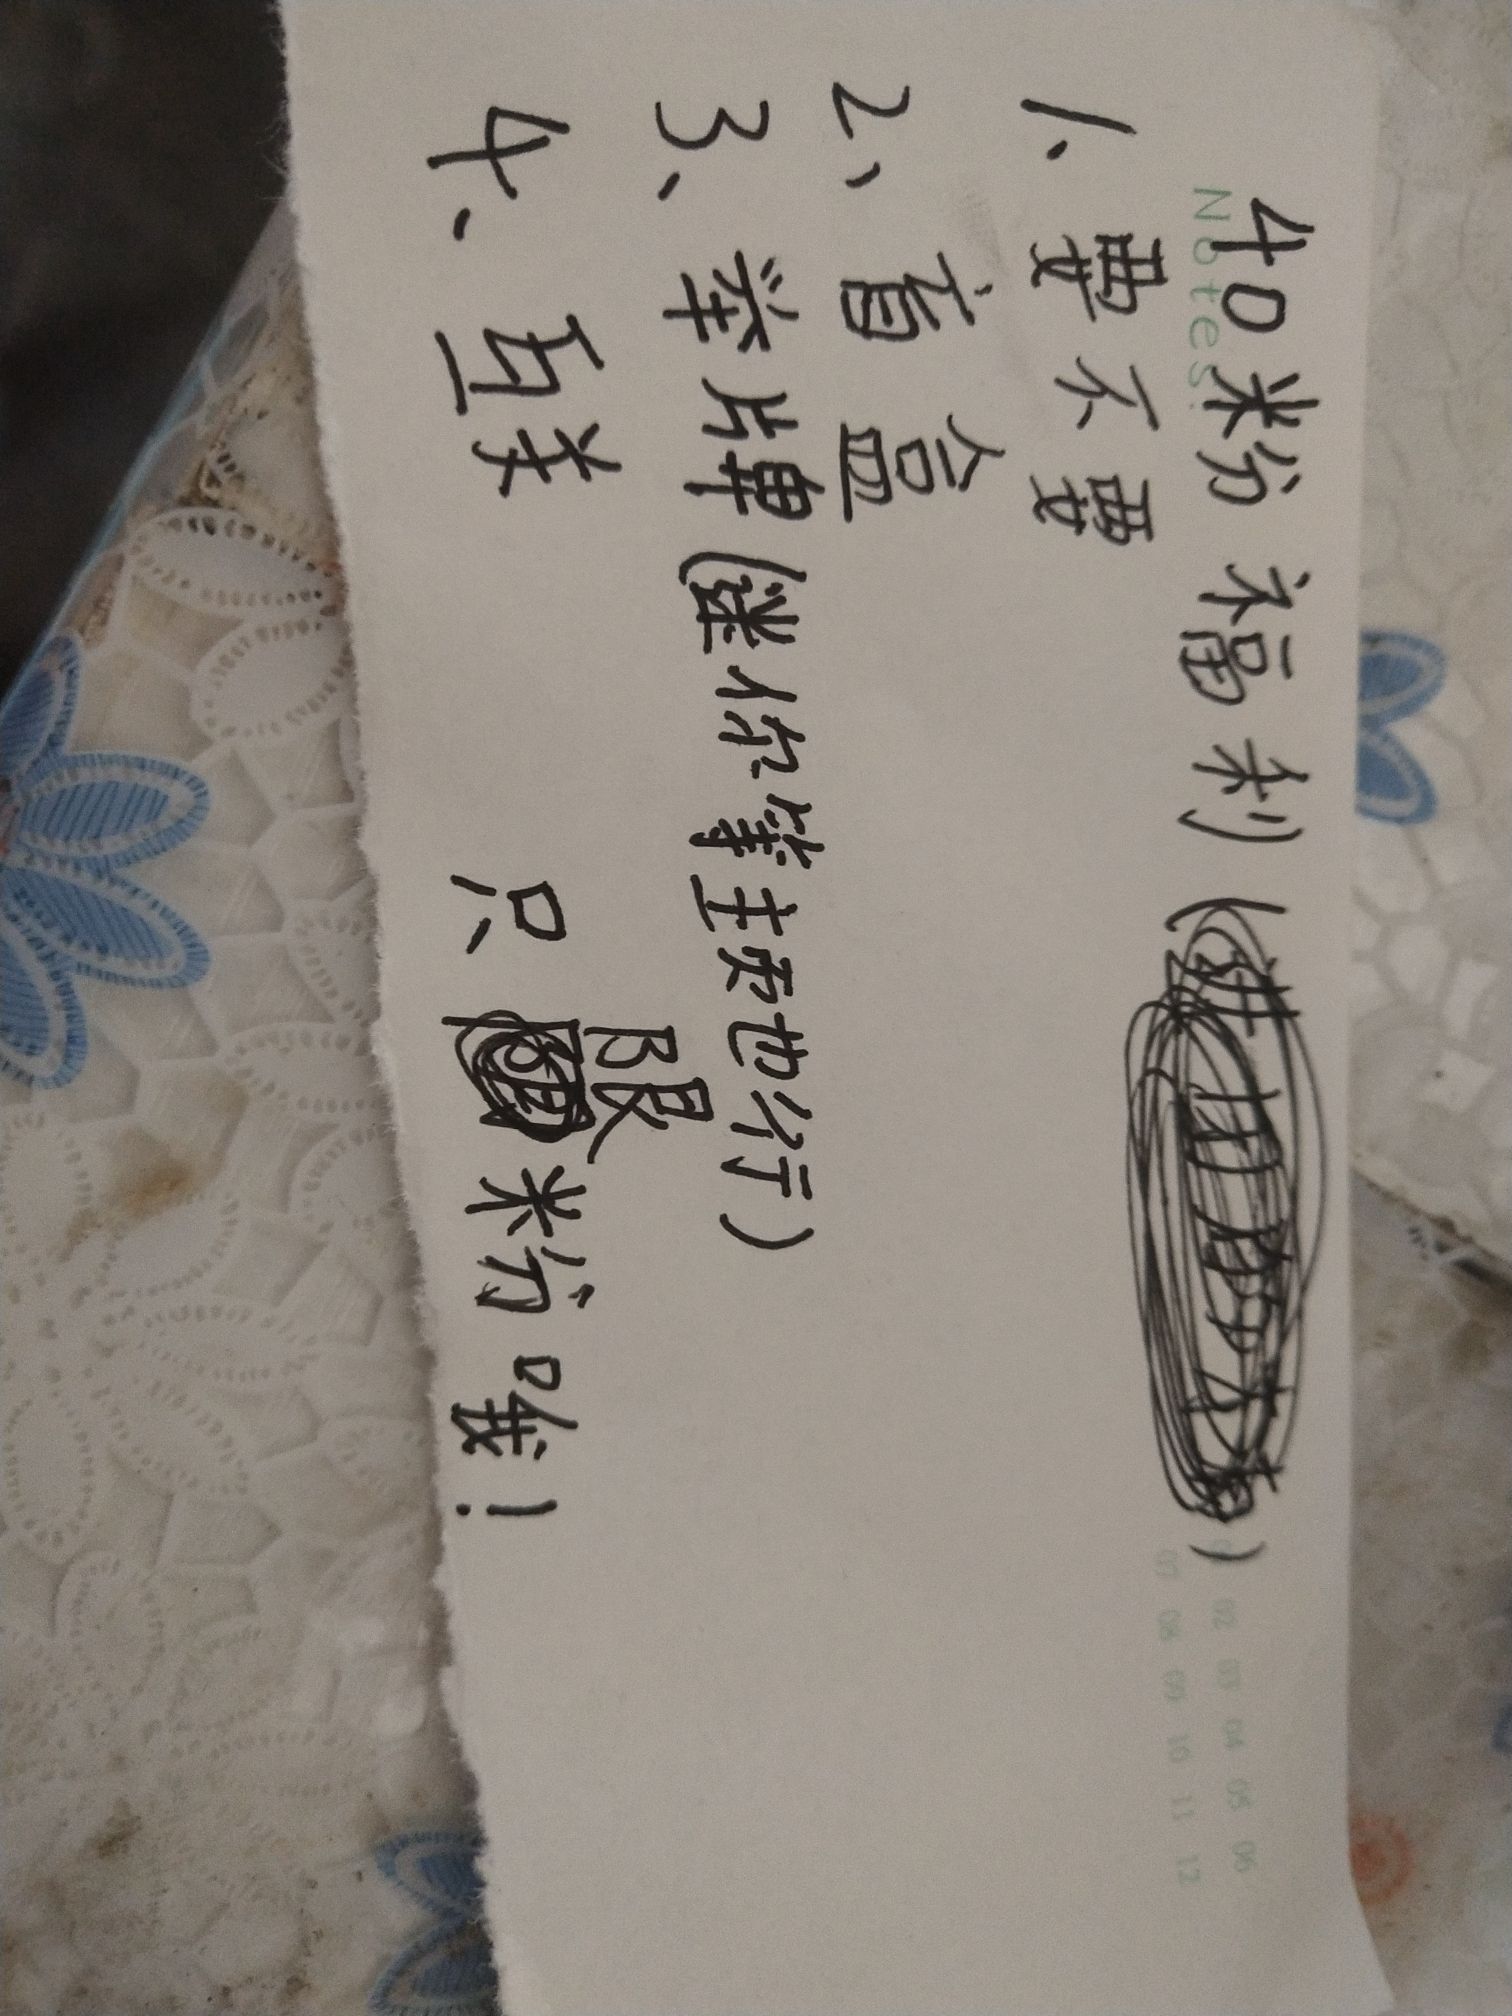 Notes.
40米分福利()
1、要不要
2、盲盒
3、举牌(迷你举主页也行)
4、互关
限
只米分哦!
02 03 04 05 06
07 08 09 10 11 12